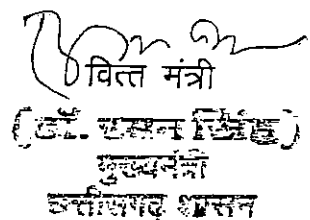 वित्त मंत्री
(डॉ. रमन सिंह)
मुख्यमंत्री
छत्तीसगढ़ शासन